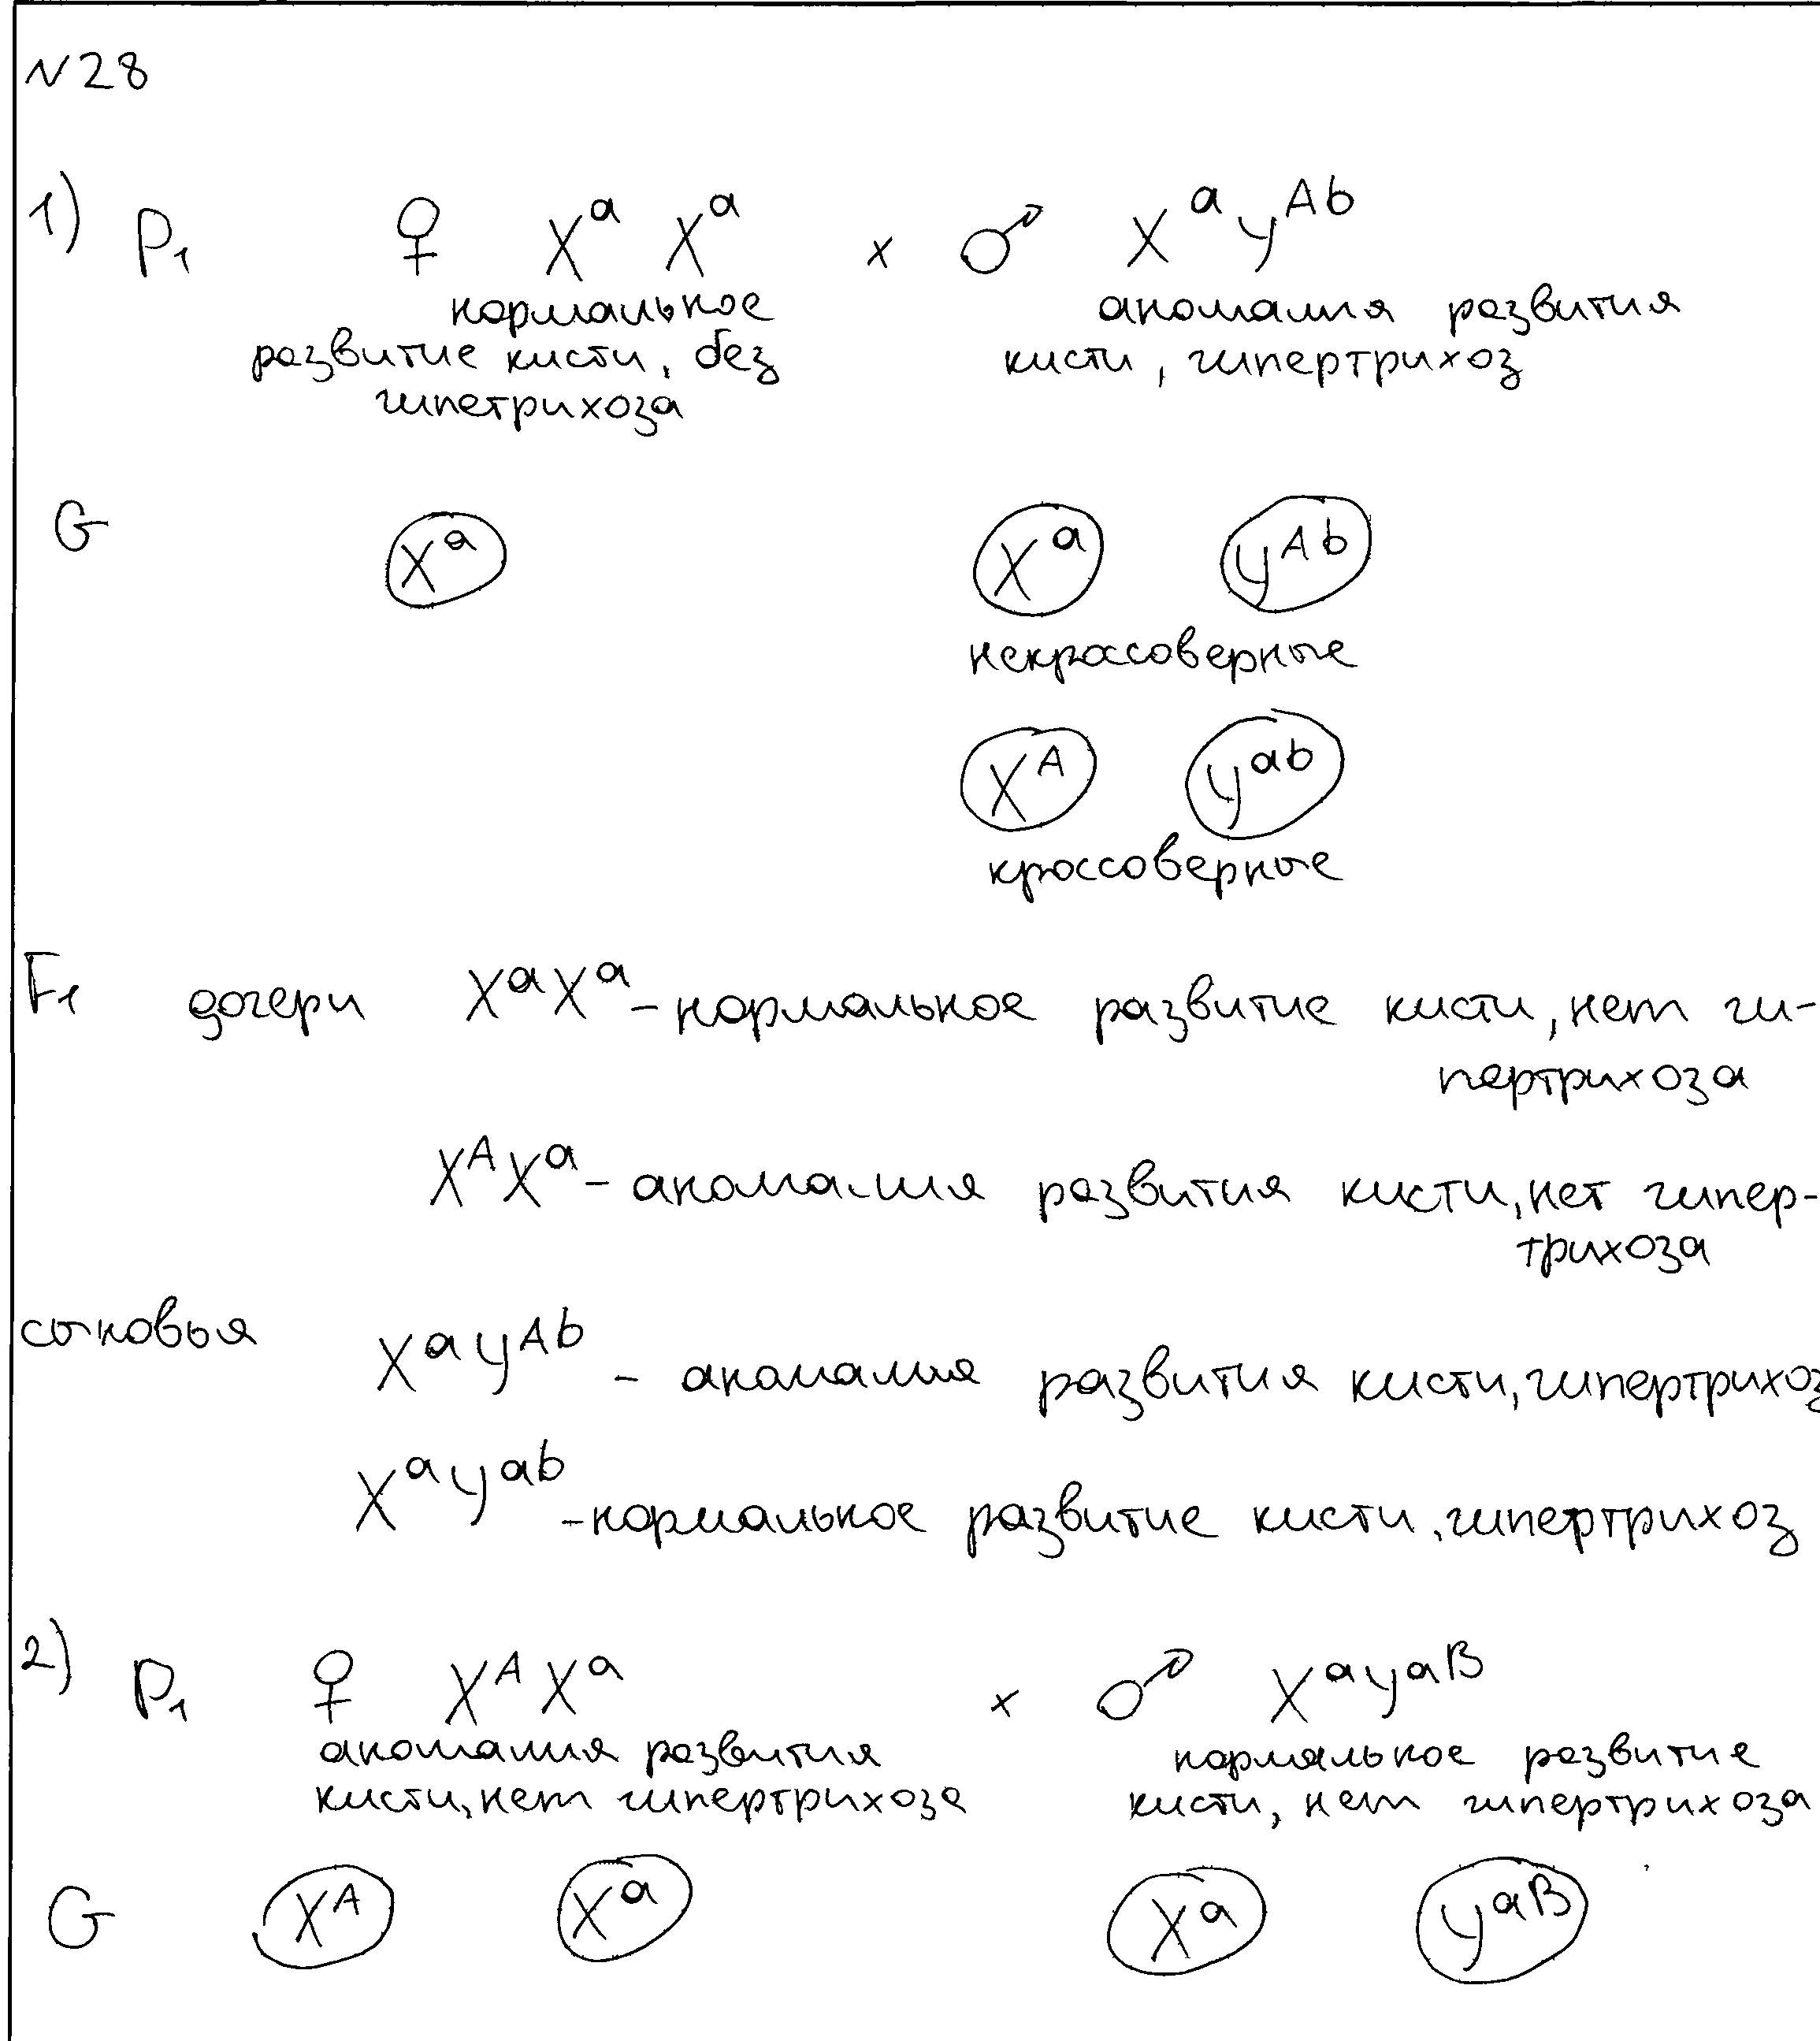 N28
1) P₁ ♀ XᵃXᵃ × ♂ XᵃYᴬᵇ
нормальное
развитие кисти, без
гипетрихоза
аномалия развития
кисти, гипертрихоз
G Xᵃ Xᵃ Yᴬᵇ
некроссоверные
Xᴬ Yᵃᵇ
кроссоверные
F₁ дочери XᵃXᵃ - нормальное развитие кисти, нет ги-
пертрихоза
XᴬXᵃ - аномалия развития кисти, нет гипер-
трихоза
сыновья XᵃYᴬᵇ - аномалия развития кисти, гипертрихоз
XᵃYᵃᵇ - нормальное развитие кисти, гипертрихоз
2) P₁ ♀ XᴬXᵃ × ♂ XᵃYᵃᴮ
аномалия развития
кисти, нет гипертрихоза
нормальное развитие
кисти, нет гипертрихоза
G Xᴬ Xᵃ Xᵃ Yᵃᴮ